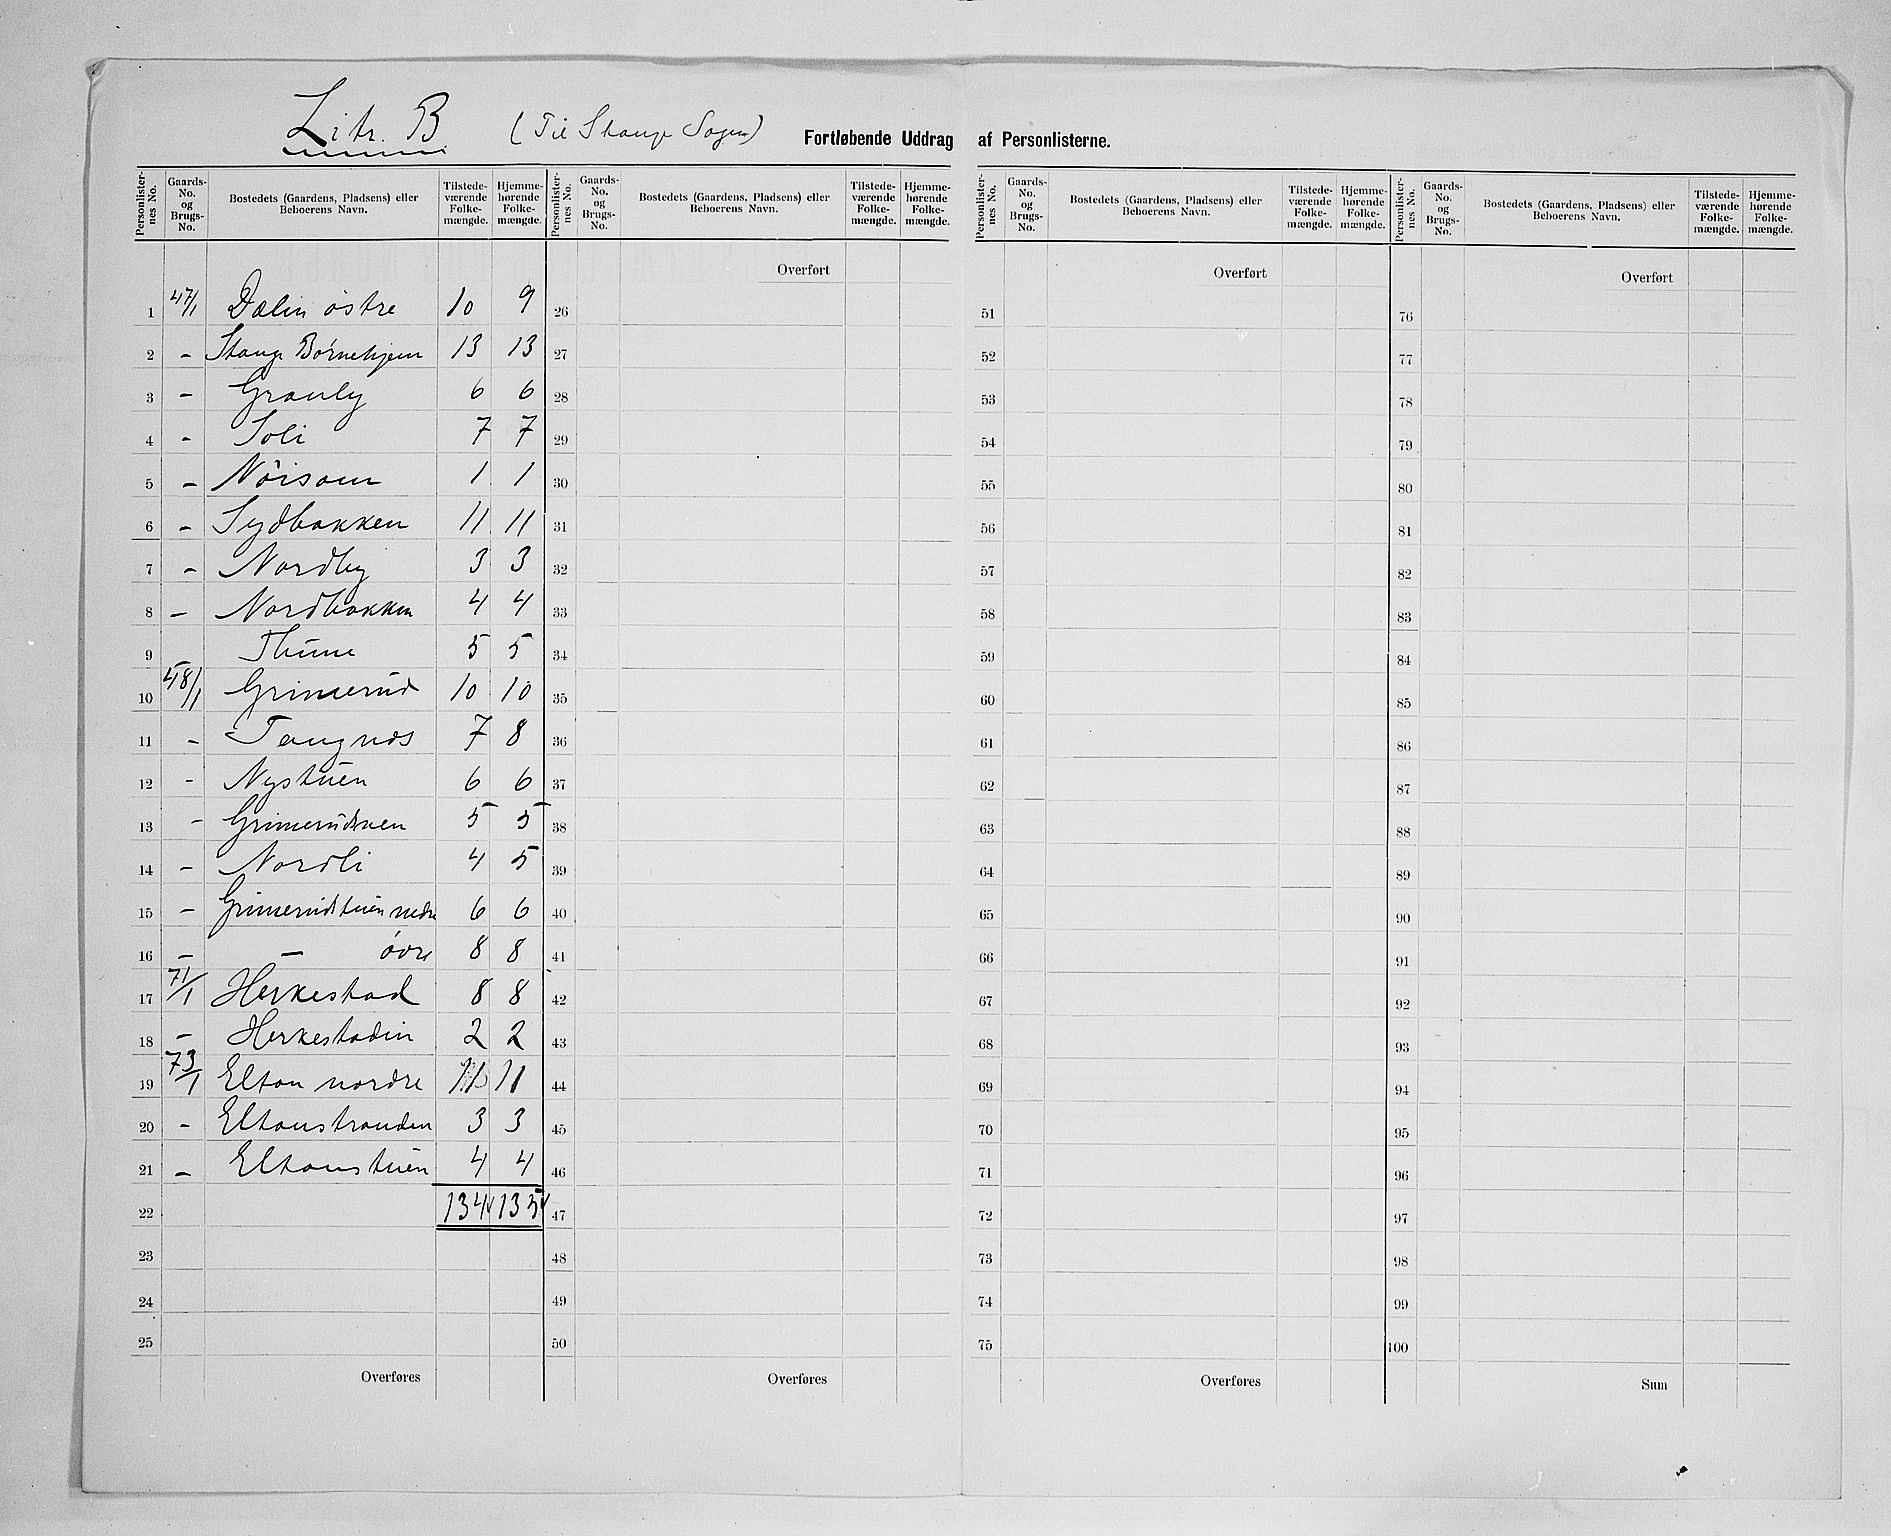 Litr. B (Til Stange Sogn) Fortløbende Uddrag af Personlisterne.
Personlister-nes No. | Gaards-No. og Brugs-No. | Bostedets (Gaardens, Pladsens) eller Beboerens Navn. | Tilstede-værende Folke-mængde. | Hjemme-hørende Folke-mængde.
Personlister-nes No. | Gaards-No. og Brugs-No. | Bostedets (Gaardens, Pladsens) eller Beboerens Navn. | Tilstede-værende Folke-mængde. | Hjemme-hørende Folke-mængde.
Personlister-nes No. | Gaards-No. og Brugs-No. | Bostedets (Gaardens, Pladsens) eller Beboerens Navn. | Tilstede-værende Folke-mængde. | Hjemme-hørende Folke-mængde.
Personlister-nes No. | Gaards-No. og Brugs-No. | Bostedets (Gaardens, Pladsens) eller Beboerens Navn. | Tilstede-værende Folke-mængde. | Hjemme-hørende Folke-mængde.
Overført Overført Overført
1 47/1 Dælin østre 10 9 26 51 76
2 - Stange Børnehjem 13 13 27 52 77
3 - Granly 6 6 28 53 78
4 - Soli 7 7 29 54 79
5 - Nöisom 1 1 30 55 80
6 - Sydbakken 11 11 31 56 81
7 - Nordby 3 3 32 57 82
8 - Nordbakken 4 4 33 58 83
9 Thune 5 5 34 59 84
10 48/1 Grimerud 10 10 35 60 85
11 - Tangnes 7 8 36 61 86
12 - Nystuen 6 6 37 62 87
13 - Grimerudsveen 5 5 38 63 88
14 - Nordli 4 5 39 64 89
15 - Grimerudstuen nedre 6 6 40 65 90
16 - - övre 8 8 41 66 91
17 71/1 Herkestad 8 8 42 67 92
18 - Herkestadin 2 2 43 68 93
19 73/1 Elton nordre 11 11 44 69 94
20 - Eltonstranden 3 3 45 70 95
21 - Eltonstuen 4 4 46 71 96
22 134 135 47 72 97
23 48 73 98
24 49 74 99
25 50 75 100
Overføres Overføres Overføres Sum